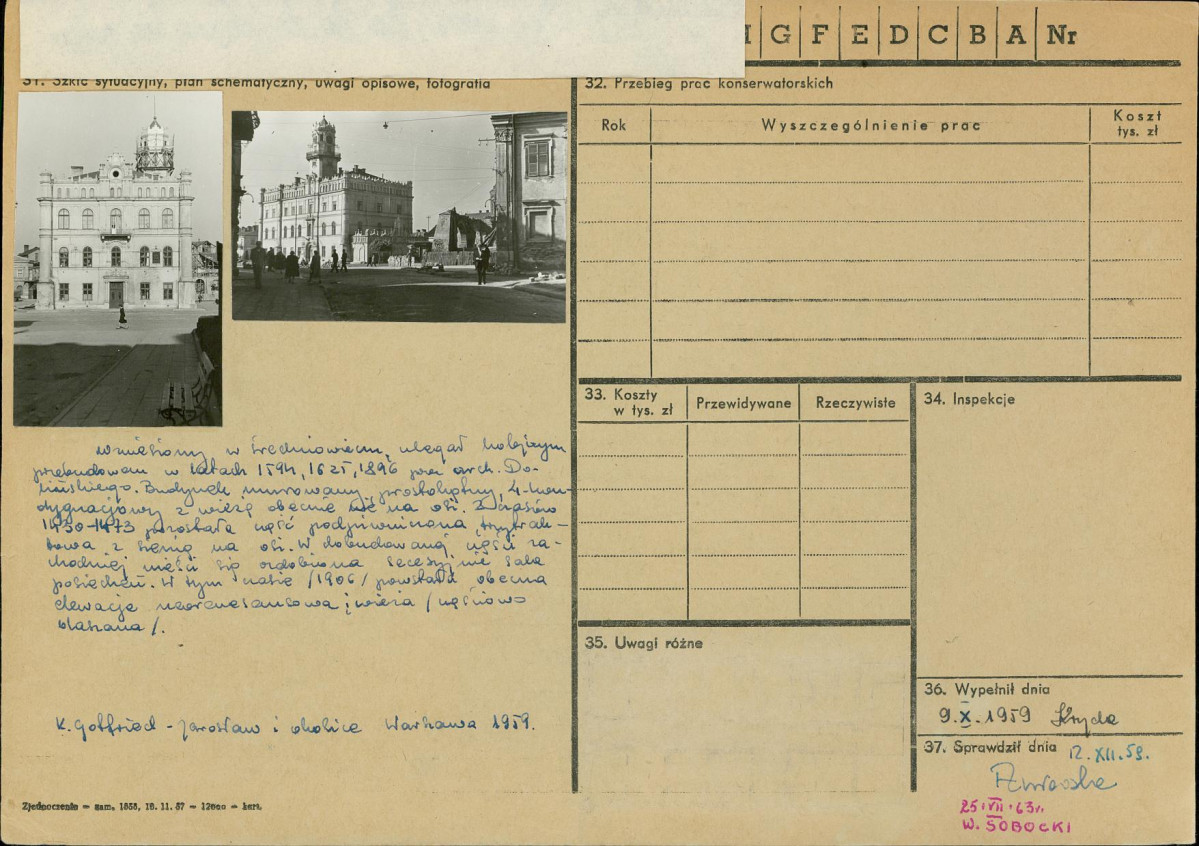 G F E D C B A Nr
31. Szkic sytuacyjny, plan schematyczny, uwagi opisowe, fotografia
wzniesiony w średniowieczu, ulegał kolejnym
przebudowom w latach 1594, 1625, 1896 przez arch. Do-
lińskiego. Budynek murowany, prostokątny, 4-kon-
dygnacjowy z wieżą obecnie nie na osi. Z czasów
1430-1473 pozostała część podpiwniczona, trzytrak-
towa z sienią na osi. W dobudowanej części za-
chodniej mieści się ozdobiona secesyjnie sala
posiedzeń. W tym czasie /1906/ powstała obecna
elewacja neorenesansowa i wieża /częściowo
blaszana/.
K. Gotfried - Jarosław i okolice Warszawa 1959.
Zjednoczenie — zam. 1858, 18. 11. 57 — 12000 — kart.
32. Przebieg prac konserwatorskich
Rok Wyszczególnienie prac Koszt
tys. zł
33. Koszty
w tys. zł Przewidywane Rzeczywiste
34. Inspekcje
35. Uwagi różne
36. Wypełnił dnia
9.X.1959
37. Sprawdził dnia 12.XII.59.
25.VII.63r.
W. SOBOCKI